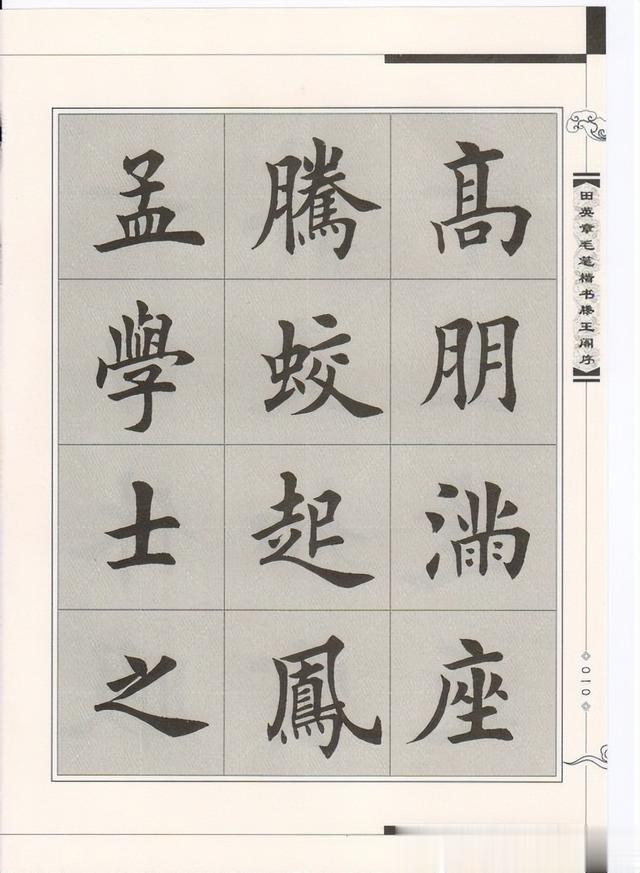 高朋滿座
騰蛟起鳳
孟學士之
田英章毛笔楷书滕王阁序
〇一〇